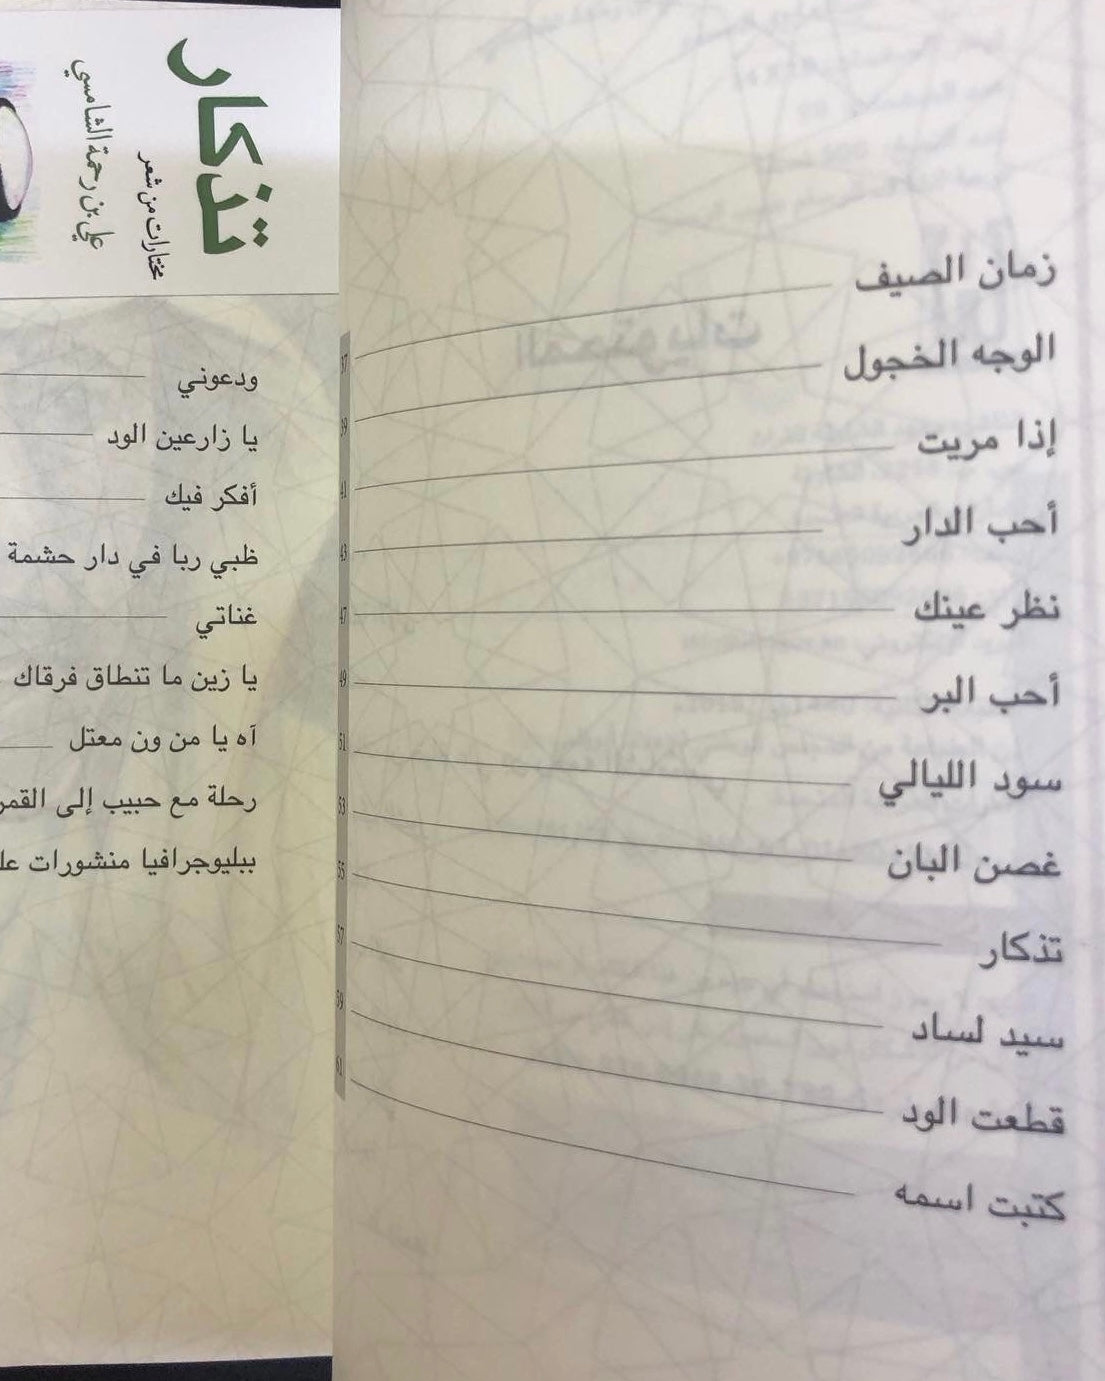 زمان الصيف 37
الوجه الخجول 39
إذا مريت 41
أحب الدار 43
نظر عينك 47
أحب البر 49
سود الليالي 51
غصن البان 53
تذكار 55
سيد لساد 57
قطعت الود 59
كتبت اسمه 61
تذكار
مختارات من شعر
علي بن رحمة الشامسي
ودعوني
يا زارعين الود
أفكر فيك
ظبي ربا في دار حشمة
غناتي
يا زين ما تنطاق فرقاك
آه يا من ون معتل
رحلة مع حبيب إلى القمر
ببليوجرافيا منشورات